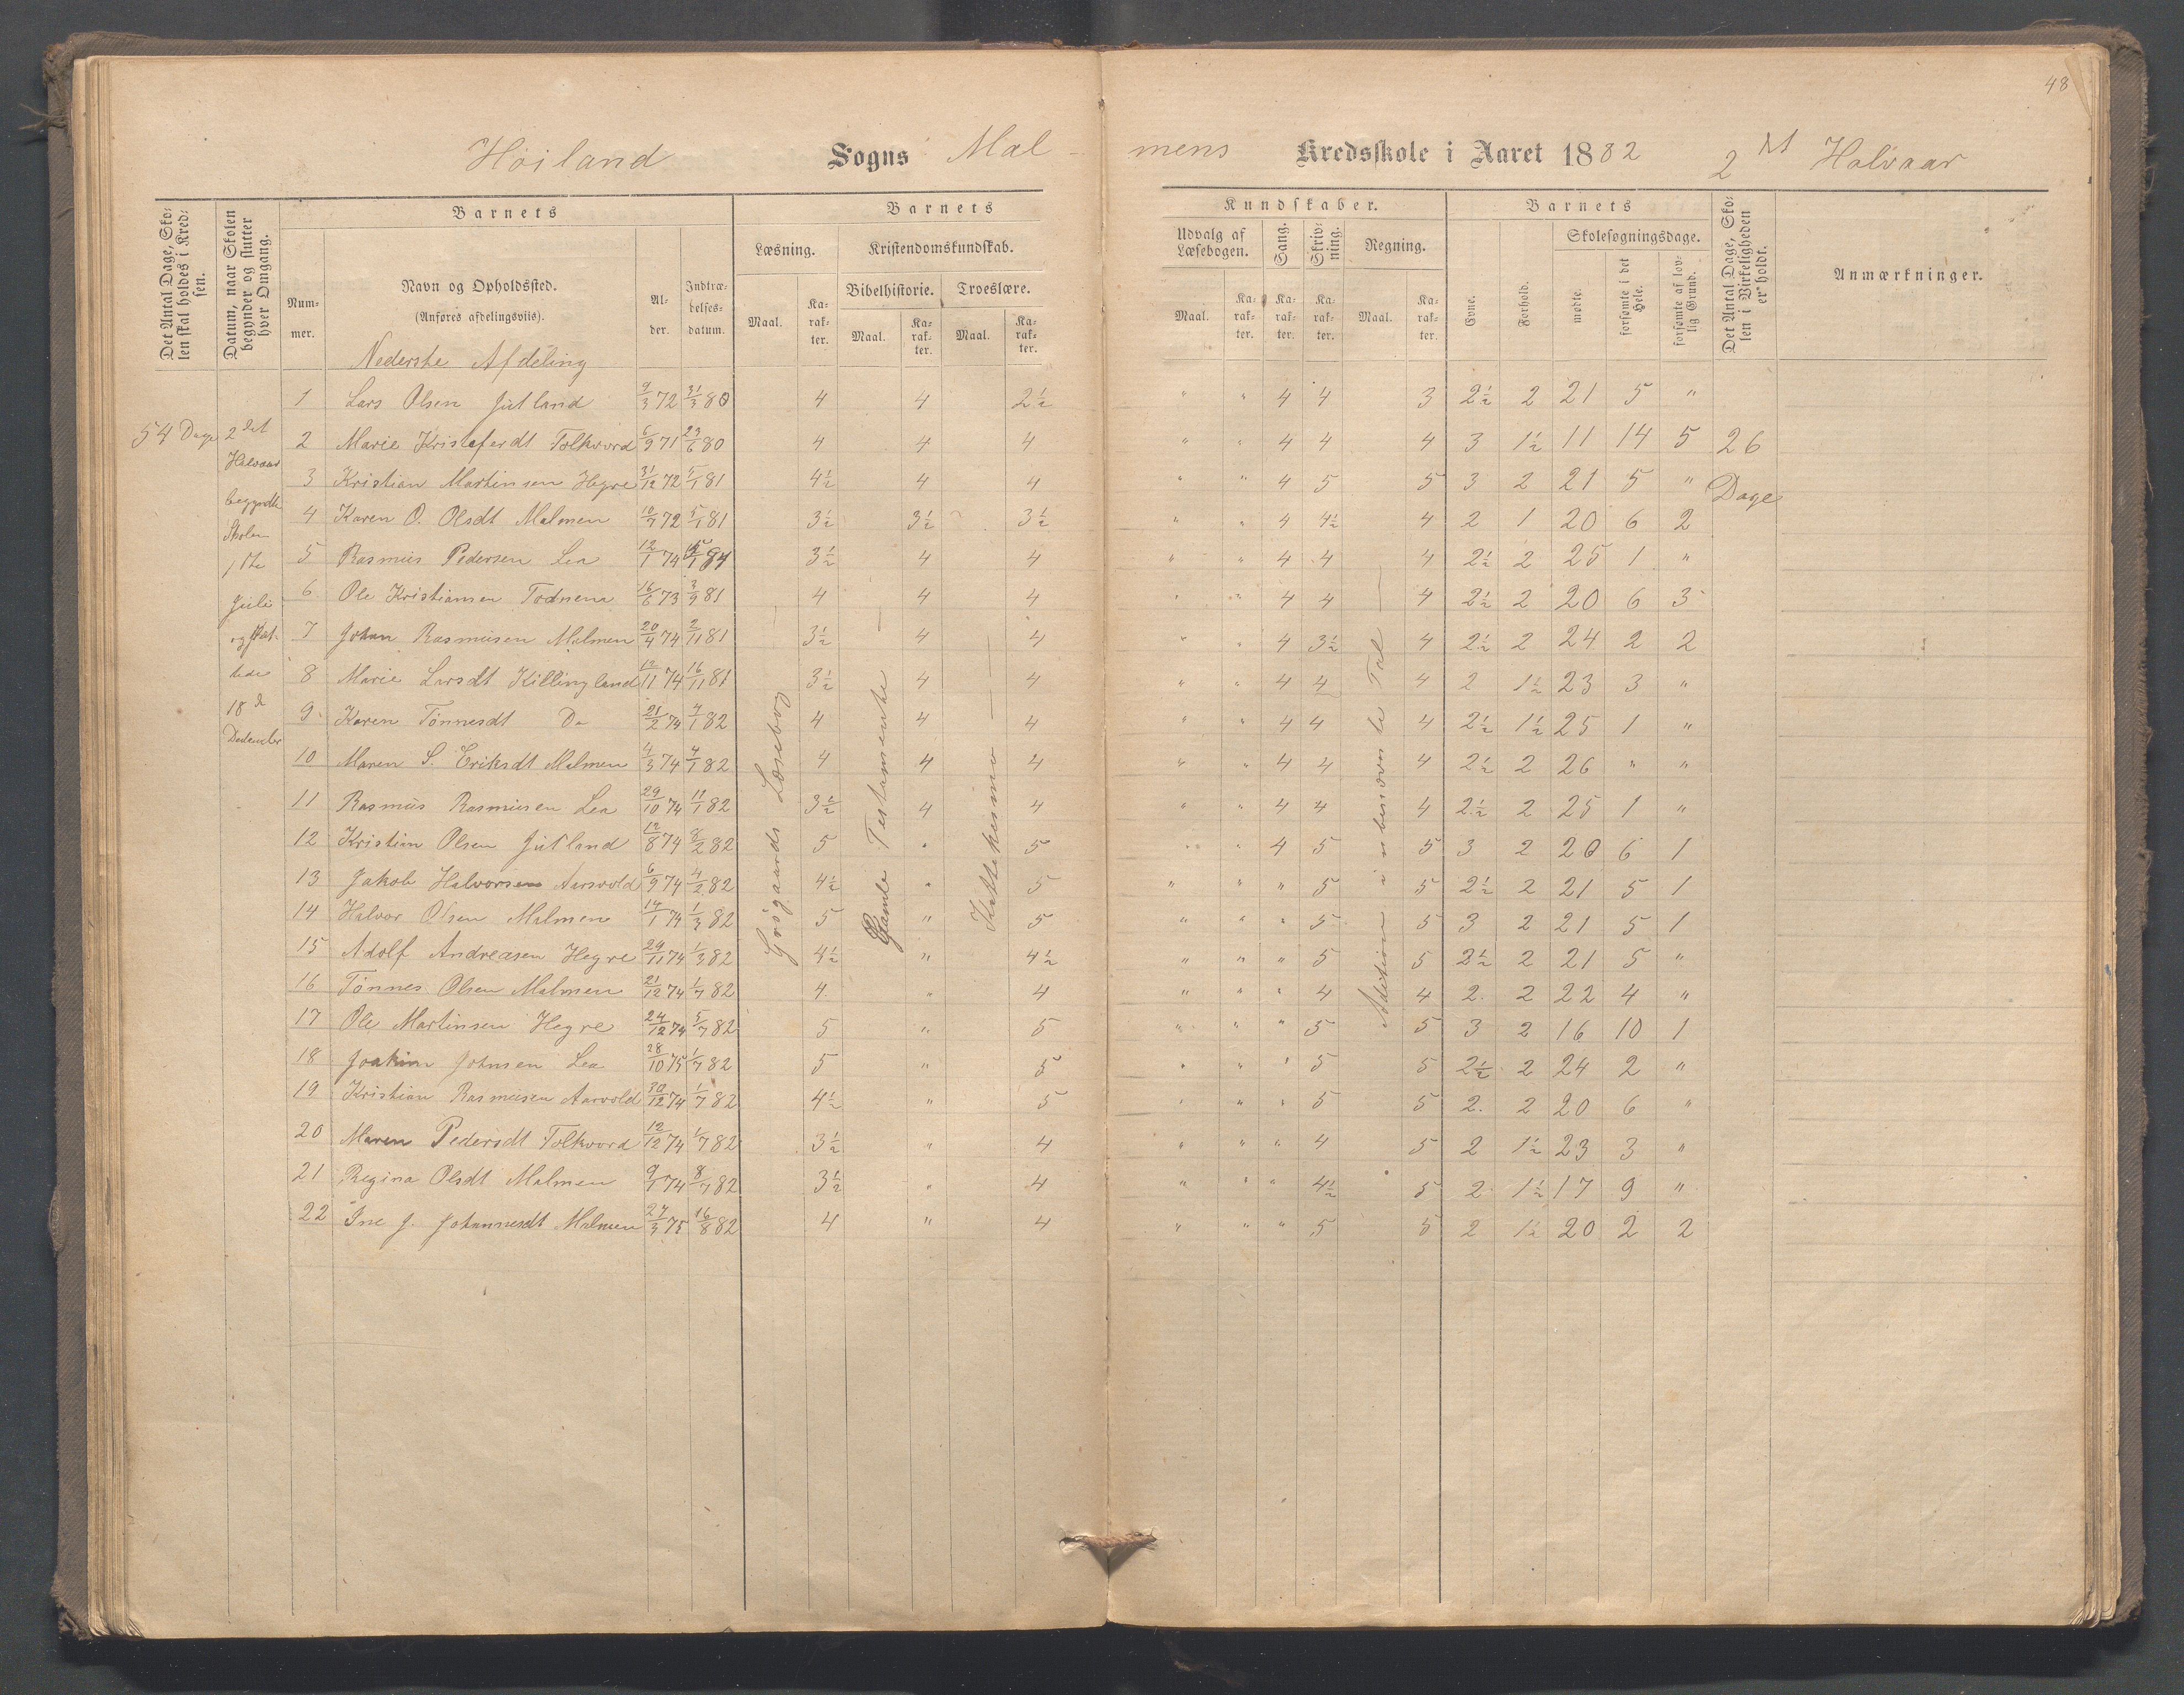 48
Høiland Sogns Mal- mens Kredsskole i Aaret 1882 2det Halvaar
Det Antal Dage, Sko-
len skal holdes i Kred-
sen.
Datum, naar Skolen
begynder og slutter
hver Omgang.
Barnets
Num-
mer.
Navn og Opholdssted.
(Anføres afdelingsviis).
Al-
der.
Indtræ-
delses-
datum.
Barnets
Læsning.
Kristendomskundskab.
Bibelhistorie. Troeslære.
Maal. Ka-
rak-
ter.
Maal. Ka-
rak-
ter.
Maal. Ka-
rak-
ter.
Kundskaber.
Udvalg af
Læsebogen.
Sang.
Skriv-
ning.
Regning.
Maal. Ka-
rak-
ter.
Ka-
rak-
ter.
Ka-
rak-
ter.
Maal. Ka-
rak-
ter.
Barnets
Evne.
Forhold.
Skolesøgningsdage.
mødte.
forsømte i det
Hele.
forsømte af lov-
lig Grund.
Det Antal Dage, Sko-
len i Virkeligheden
er holdt.
Anmærkninger.
Nederste Afdeling
54 Dage
2det
Halvaar
begyndte
Skolen
1ste
Juli
og slut-
tede
18d
December
Girgaards Læsebog
Gamle Testamente
Kattekesimo
Adition i ubenævnte Tal
26
Dage
1 Lars Olsen Jutland 9/3 72 31/3 80 4 4 2½ " " 4 4 3 2½ 2 21 5 "
2 Marie Kristoferdt Folkvord 6/9 71 29/6 80 4 4 4 " " 4 4 4 3 1½ 11 14 5
3 Kristian Martinsen Hegre 31/12 72 5/1 81 4½ 4 4 " " 4 5 5 3 2 21 5 "
4 Karen O. Olsdt Malmen 10/7 72 5/1 81 3½ 3½ 3½ " " 4 4½ 4 2 1 20 6 2
5 Rasmus Pedersen Lea 12/1 74 3½ 4 4 " " 4 4 4 2½ 2 25 1 "
6 Ole Kristiansen Todnem 16/6 73 3/9 81 4 4 4 " " 4 4 4 2½ 2 20 6 3
7 Johan Rasmusen Malmen 20/4 74 2/11 81 3½ 4 4 " " 4 3½ 4 2½ 2 24 2 2
8 Marie Larsdt Killingland 12/11 74 16/11 81 3½ 4 4 " " 4 4 4 2 1½ 23 3 "
9 Karen Tönnesdt Do 21/2 74 4/1 82 4 4 4 " " 4 4 4 2½ 1½ 25 1 "
10 Maren S. Eriksdt Malmen 4/3 74 4/1 82 4 4 4 " " 4 4 4 2½ 2 26 " "
11 Rasmus Rasmusen Lea 29/10 74 11/1 82 3½ 4 4 " " 4 4 4 2½ 2 25 1 "
12 Kristian Olsen Jutland 12/8 74 8/2 82 5 " 5 " " 4 5 5 3 2 20 6 1
13 Jakob Halvorsen Aarsvold 6/9 74 4/2 82 4½ " 5 " " " 5 5 2½ 2 21 5 1
14 Halvor Olsen Malmen 14/1 74 1/3 82 5 " 5 " " " 5 5 3 2 21 5 1
15 Adolf Andreasen Hegre 29/11 74 1/3 82 4½ " 4½ " " " 5 5 2½ 2 21 5 "
16 Tönnes Olsen Malmen 21/12 74 1/7 82 4 " 4 " " " 4 4 2 2 22 4 "
17 Ole Martinsen Hegre 24/12 74 5/7 82 5 " 5 " " " 5 5 3 2 16 10 1
18 Joakim Johnsen Lea 28/10 75 1/7 82 5 " 5 " " " 5 5 2½ 2 24 2 "
19 Kristian Rasmusen Aarvold 30/12 74 1/7 82 4½ " 5 " " " 5 5 2 2 20 6 "
20 Maren Pedersdt Folkvord 12/12 74 1/7 82 3½ " 4 " " " 4 5 2 1½ 23 3 "
21 Regina Olsdt Malmen 9/1 74 8/7 82 3½ " 4 " " " 4½ 5 2 1½ 17 9 "
22 Ine J. Johannesdt Malmen 27/3 75 16/8 82 4 " 4 " " " 5 5 2 1½ 20 2 2